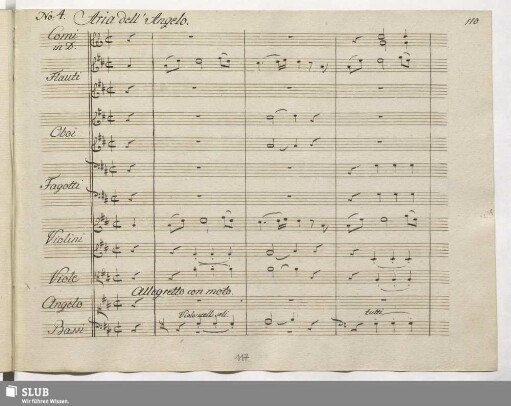 No: 4. Aria dell' Angelo. 110
Corni
in D.
Flauti
Oboi
Fagotti
Violini
Viole
Allegretto con moto.
Angelo
Violoncelli soli.
tutti
Bassi
117
SLUB
Wir führen Wissen.